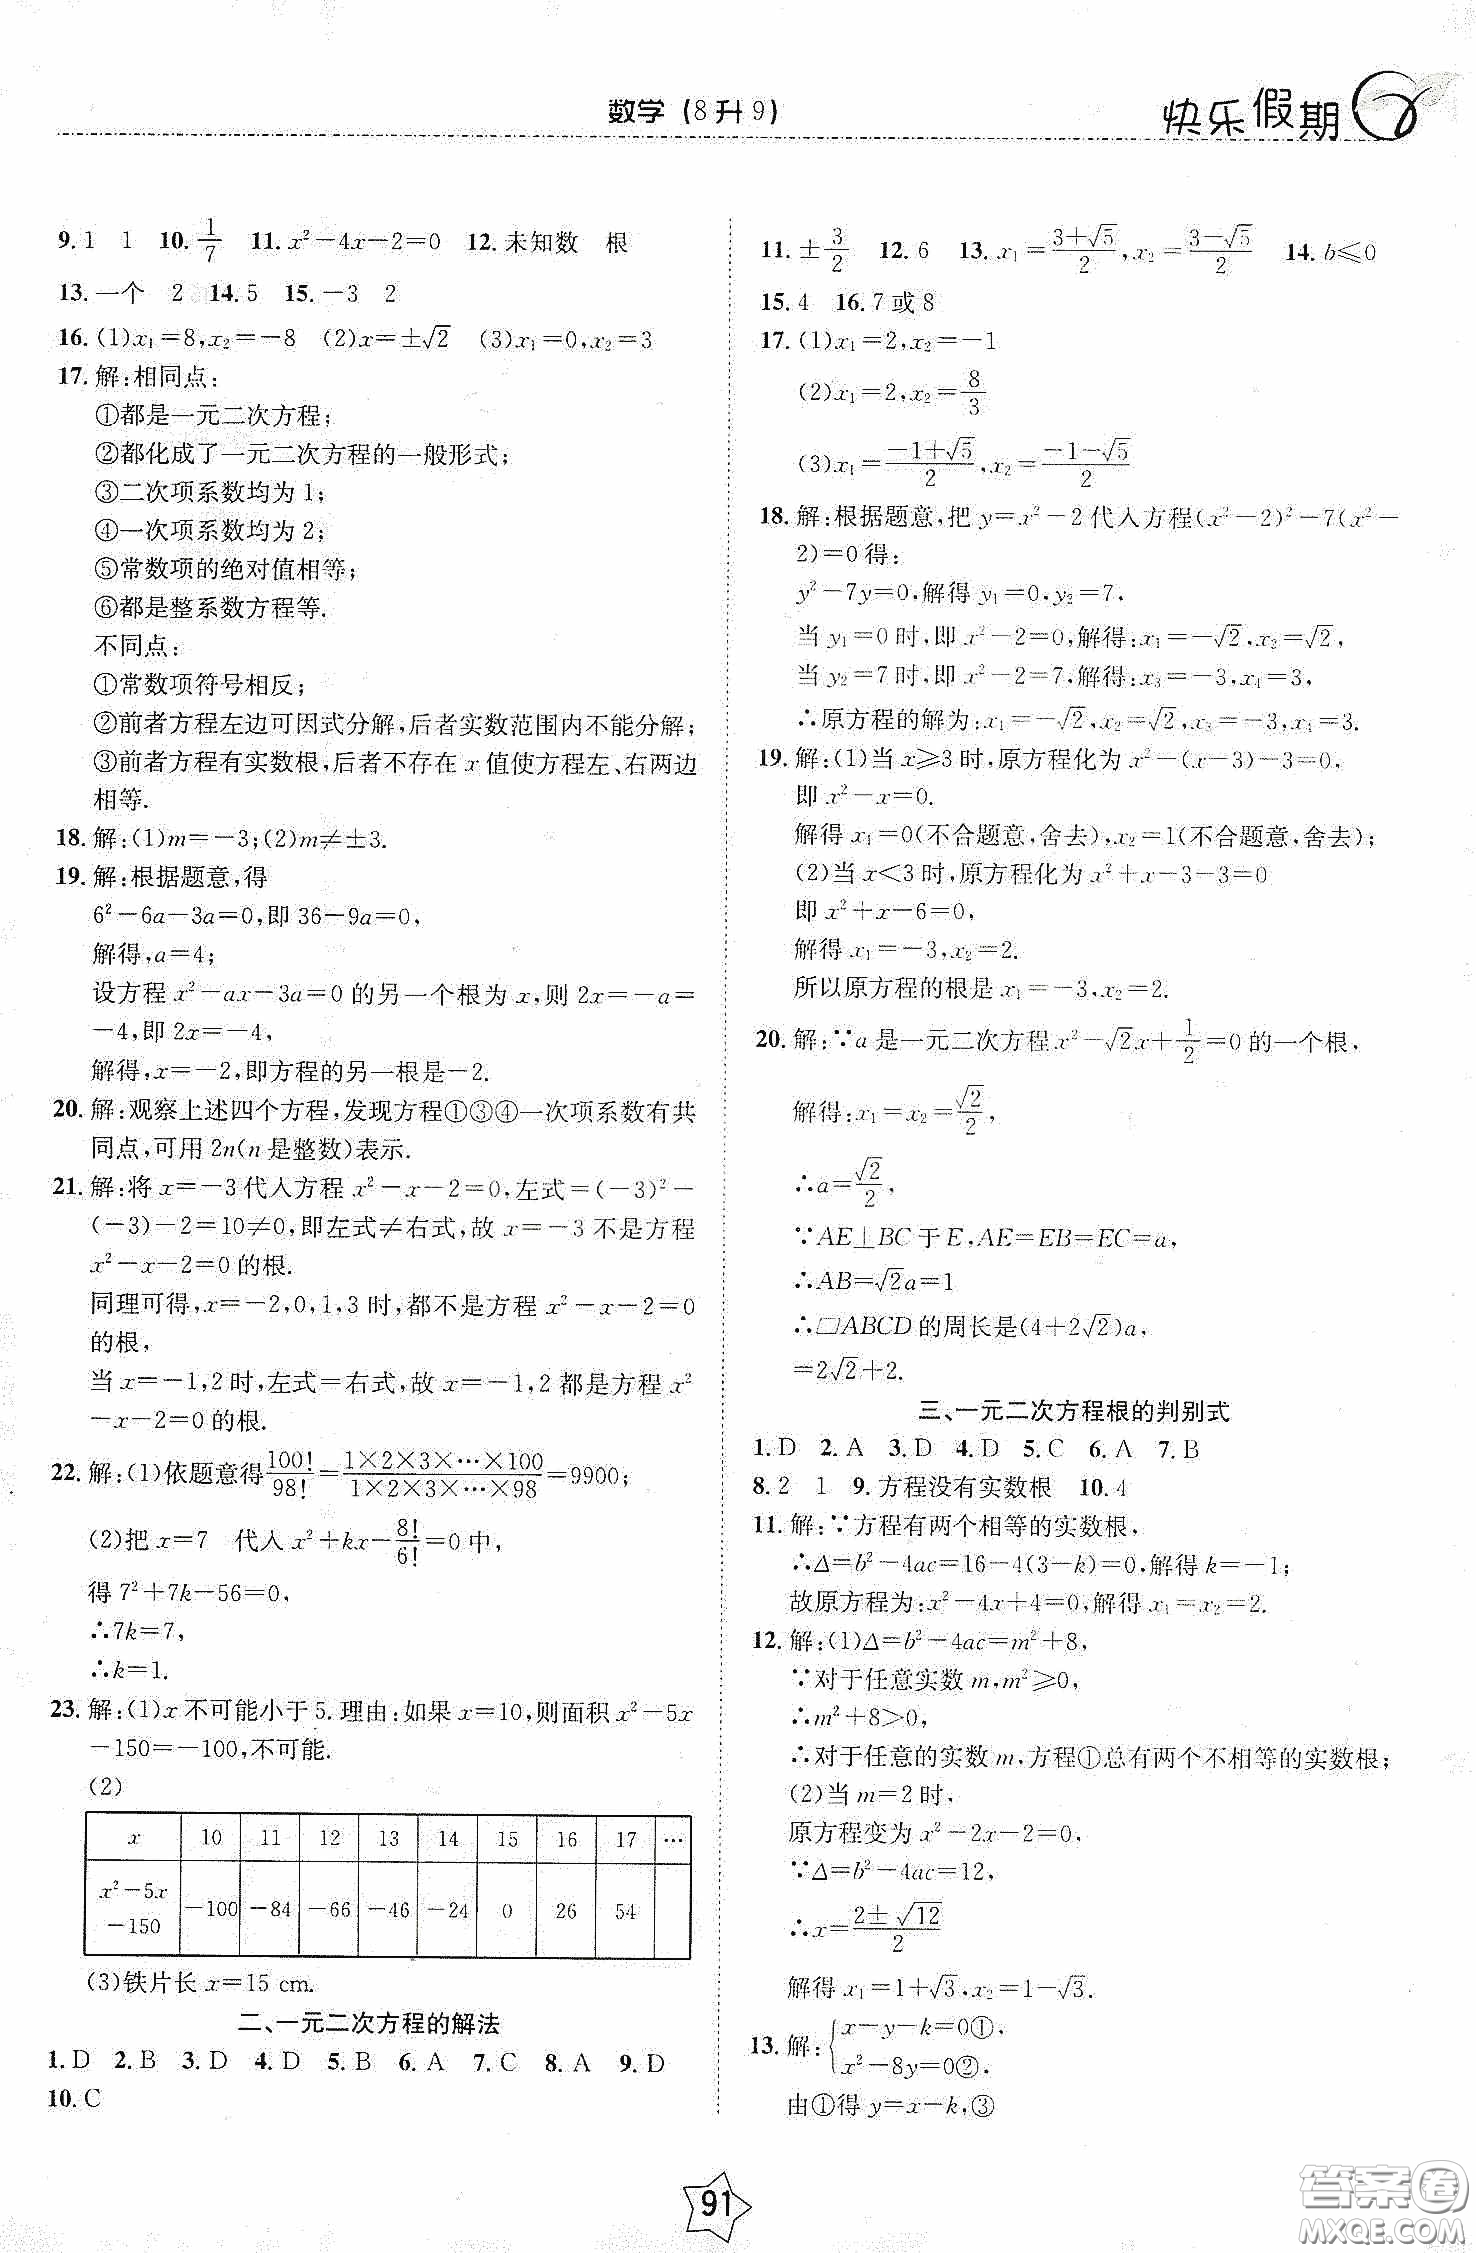 数学 (8 升 9)
快乐假期
9. 1 1 10. 1/7 11. x²－4x－2＝0 12. 未知数 根
13. 一个 2 14. 5 15. －3 2
16. (1)x₁＝8,x₂＝－8 (2)x＝±√2 (3)x₁＝0,x₂＝3
17. 解:相同点:
①都是一元二次方程;
②都化成了一元二次方程的一般形式;
③二次项系数均为 1;
④一次项系数均为 2;
⑤常数项的绝对值相等;
⑥都是整系数方程等.
不同点:
①常数项符号相反;
②前者方程左边可因式分解,后者实数范围内不能分解;
③前者方程有实数根,后者不存在 x 值使方程左、右两边
相等.
18. 解:(1)m＝－3;(2)m≠±3.
19. 解:根据题意,得
6²－6a－3a＝0,即 36－9a＝0,
解得,a＝4;
设方程 x²－ax－3a＝0 的另一个根为 x,则 2x＝－a＝
－4,即 2x＝－4,
解得,x＝－2,即方程的另一根是－2.
20. 解:观察上述四个方程,发现方程①③④一次项系数有共
同点,可用 2n(n 是整数)表示.
21. 解:将 x＝－3 代入方程 x²－x－2＝0,左式＝(－3)²－
(－3)－2＝10≠0,即左式≠右式,故 x＝－3 不是方程
x²－x－2＝0 的根.
同理可得,x＝－2,0,1,3 时,都不是方程 x²－x－2＝0
的根,
当 x＝－1,2 时,左式＝右式,故 x＝－1,2 都是方程 x²
－x－2＝0 的根.
22. 解:(1)依题意得 100!/98!＝(1×2×3×…×100)/(1×2×3×…×98)＝9900;
(2)把 x＝7 代入 x²＋kx－8!/6!＝0 中,
得 7²＋7k－56＝0,
∴7k＝7,
∴k＝1.
23. 解:(1)x 不可能小于 5. 理由:如果 x＝10,则面积 x²－5x
－150＝－100,不可能.
(2)
x 10 11 12 13 14 15 16 17 …
x²－5x
－150 －100 －84 －66 －46 －24 0 26 54
(3)铁片长 x＝15 cm.
二、一元二次方程的解法
1. D 2. B 3. D 4. D 5. B 6. A 7. C 8. A 9. D
10. C
11. ±3/2 12. 6 13. x₁＝(3＋√5)/2,x₂＝(3－√5)/2 14. b≤0
15. 4 16. 7 或 8
17. (1)x₁＝2,x₂＝－1
(2)x₁＝2,x₂＝8/3
(3)x₁＝(－1＋√5)/2,x₂＝(－1－√5)/2
18. 解:根据题意,把 y＝x²－2 代入方程(x²－2)²－7(x²－
2)＝0 得:
y²－7y＝0,解得 y₁＝0,y₂＝7,
当 y₁＝0 时,即 x²－2＝0,解得:x₁＝－√2,x₂＝√2,
当 y₂＝7 时,即 x²－2＝7,解得:x₃＝－3,x₄＝3,
∴原方程的解为:x₁＝－√2,x₂＝√2,x₃＝－3,x₄＝3.
19. 解:(1)当 x≥3 时,原方程化为 x²－(x－3)－3＝0,
即 x²－x＝0.
解得 x₁＝0(不合题意,舍去),x₂＝1(不合题意,舍去);
(2)当 x＜3 时,原方程化为 x²＋x－3－3＝0
即 x²＋x－6＝0,
解得 x₁＝－3,x₂＝2.
所以原方程的根是 x₁＝－3,x₂＝2.
20. 解:∵a 是一元二次方程 x²－√2x＋1/2＝0 的一个根,
解得:x₁＝x₂＝√2/2,
∴a＝√2/2,
∵AE⊥BC 于 E,AE＝EB＝EC＝a,
∴AB＝√2a＝1
∴▱ABCD 的周长是(4＋2√2)a,
＝2√2＋2.
三、一元二次方程根的判别式
1. D 2. A 3. D 4. D 5. C 6. A 7. B
8. 2 1 9. 方程没有实数根 10. 4
11. 解:∵方程有两个相等的实数根,
∴Δ＝b²－4ac＝16－4(3－k)＝0,解得 k＝－1;
故原方程为:x²－4x＋4＝0,解得 x₁＝x₂＝2.
12. 解:(1)Δ＝b²－4ac＝m²＋8,
∵对于任意实数 m,m²≥0,
∴m²＋8>0,
∴对于任意的实数 m,方程①总有两个不相等的实数根;
(2)当 m＝2 时,
原方程变为 x²－2x－2＝0,
∵Δ＝b²－4ac＝12,
∴x＝(2±√12)/2
解得 x₁＝1＋√3,x₂＝1－√3.
13. 解:{x－y－k＝0①,
x²－8y＝0②.
由①得 y＝x－k,③
91
答案圈
MXQE.COM